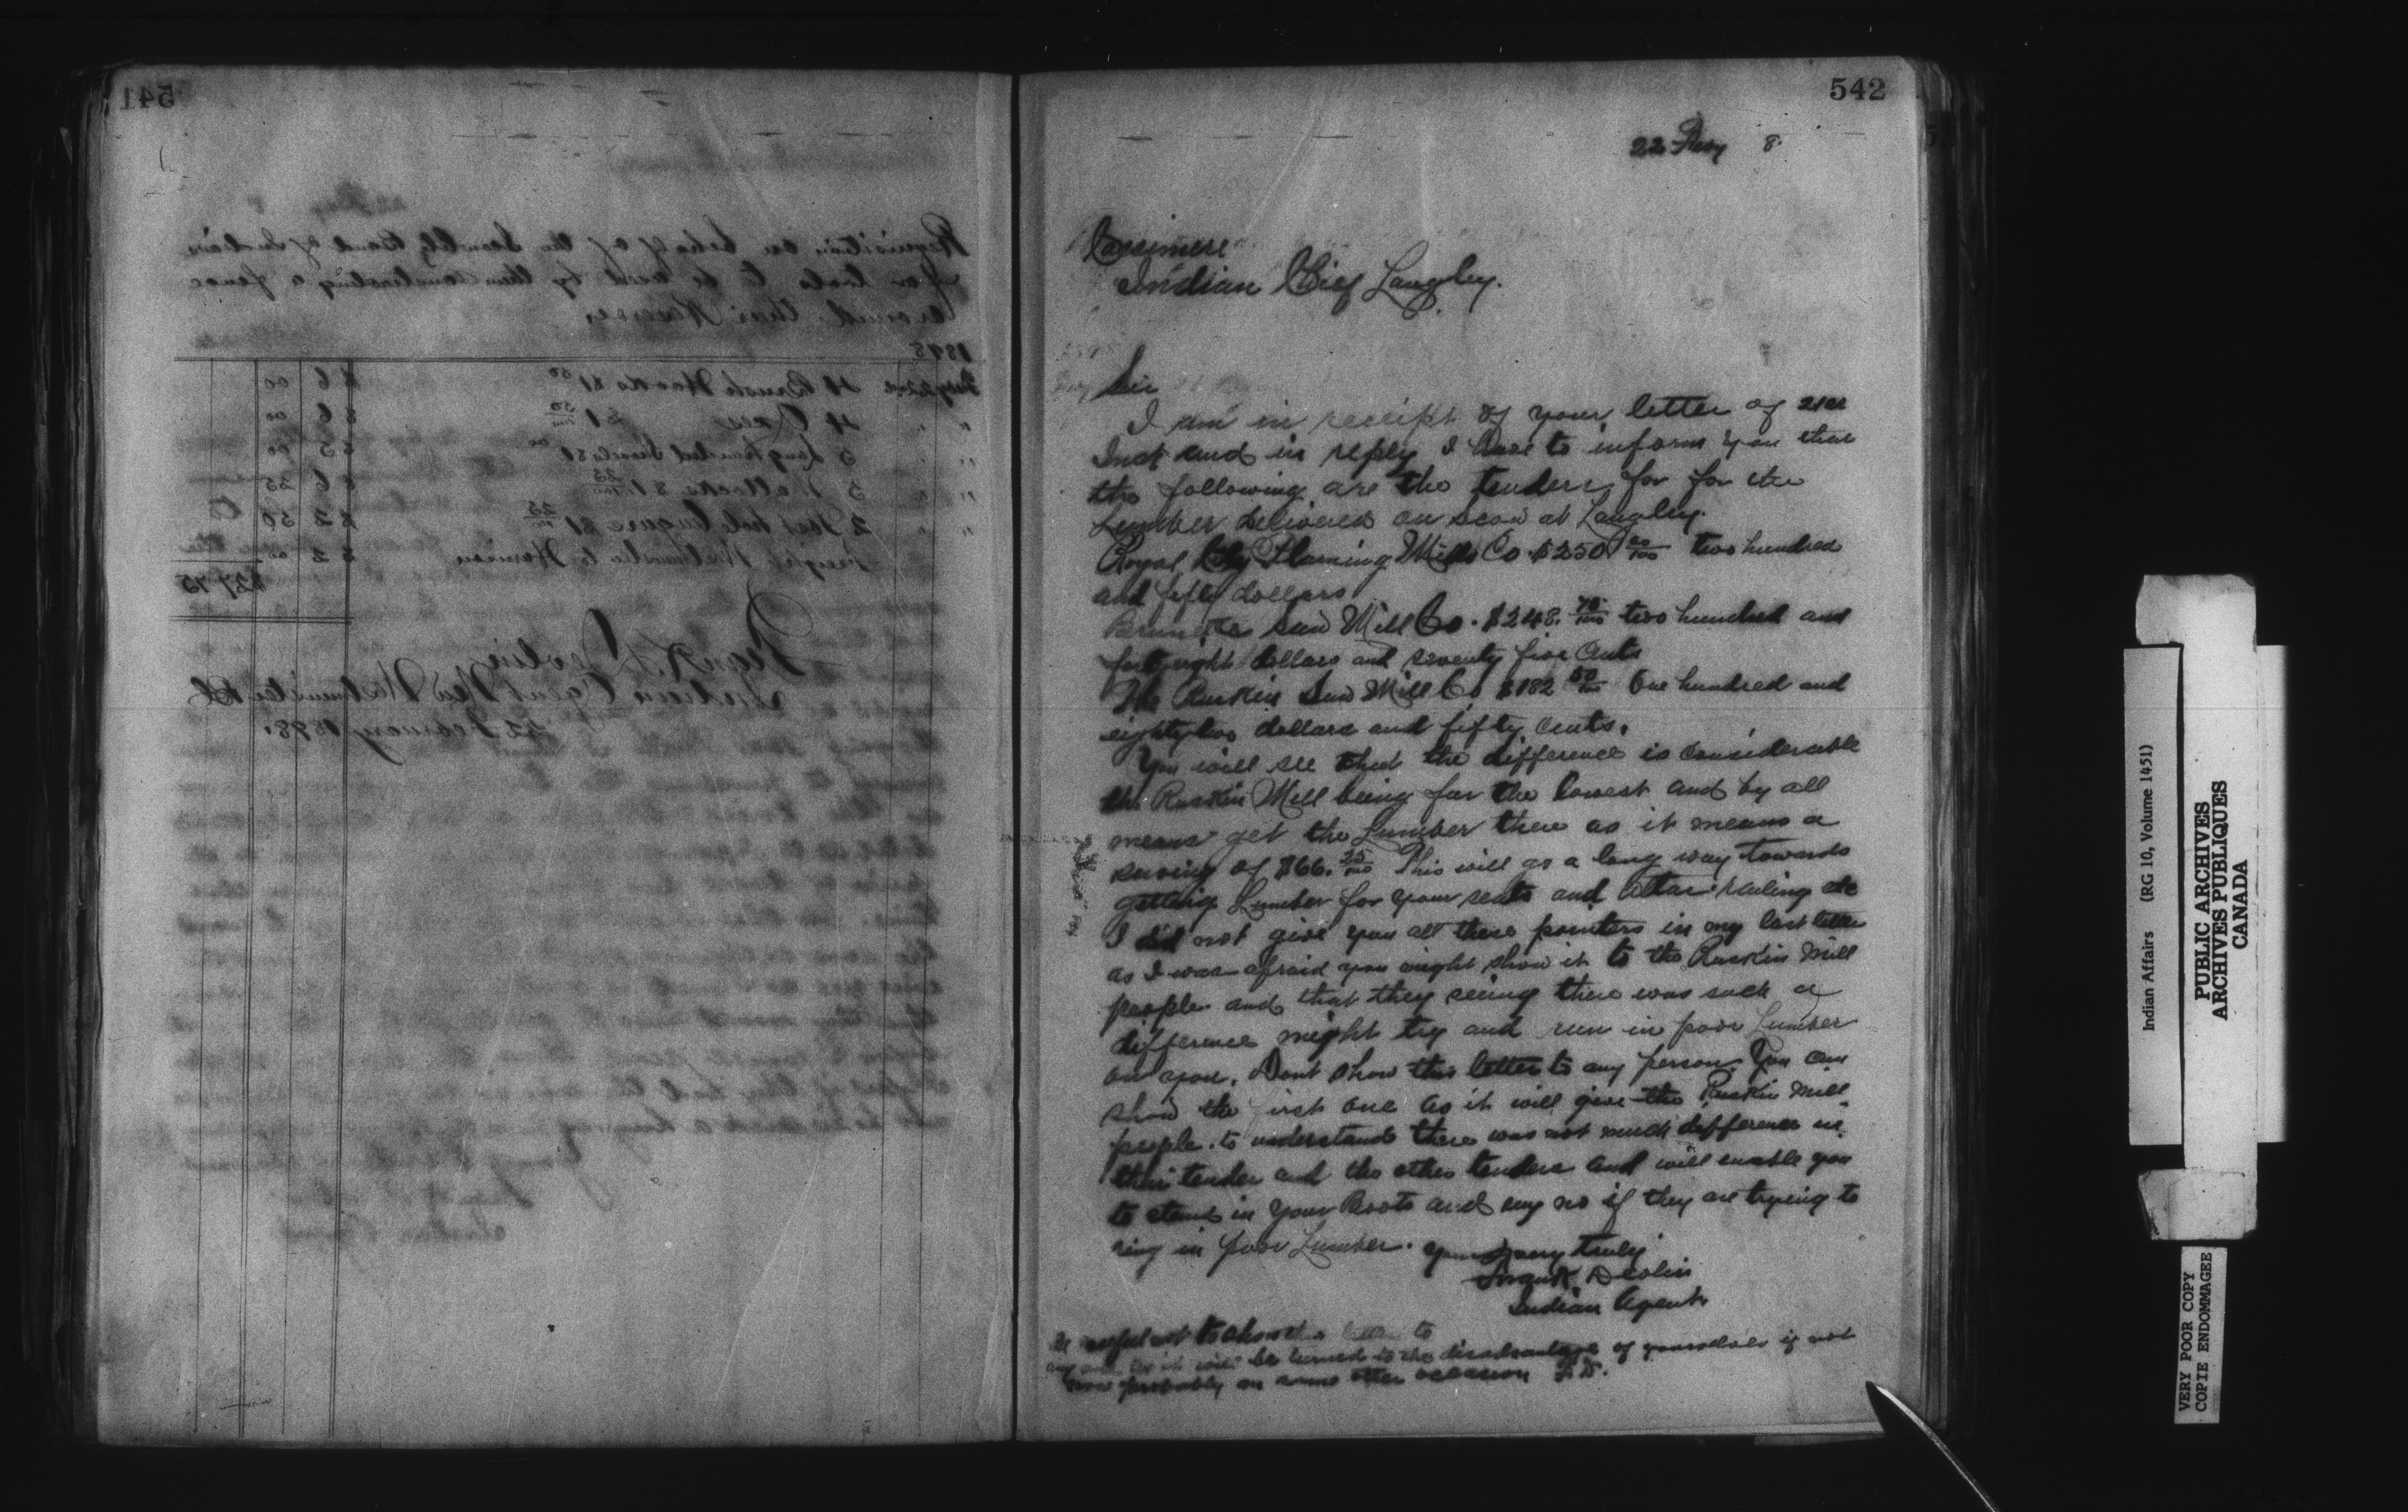 541
Requisition on behalf of the Band of Indians
for tools to be used by them constructing a fence
around their Reserve
1898
Feby 22nd 4 Brush Hooks $1 50 $ 6 00
" " 4 Axes $1 50/100 $ 6 00
" " 5 Long handled Shovels $1 00 $ 5 00
" " 5 Mattocks $1 25/100 $ 6 25
" " 2 Post hole Augers $1 25/100 $ 2 50
Freight Westminster to $ 2 00
$27 75
Frank Devlin
Indian Agent New Westminster BC
22 February 1898.
542
22 Feby 8
Cassimere
Indian Chief Langley.
Sir
I am in receipt of your letter of 21st
Inst and in reply I have to inform you that
the following are the tenders for for the
Lumber delivered on scow at Langley.
Royal City Planing Mills Co. $250 00/100 two hundred
and fifty dollars
Brunette Saw Mill Co. $248. 75/100 two hundred and
forty eight dollars and seventy five cents
The Ruskin Saw Mill Co $182 50/100 One hundred and
eighty two dollars and fifty cents.
You will see that the difference is considerable
the Ruskin Mill being far the lowest and by all
means get the Lumber there as it means a
saving of $66. 25/100 This will go a long way towards
getting Lumber for your seats and altar railing etc
I did not give you all these pointers in my last letter
as I was afraid you might show it to the Ruskin Mill
people and that they seeing there was such a
difference might try and run in poor Lumber
on you. Dont show this letter to any person. You can
show the first one as it will give the Ruskin Mill
people to understand there was not much difference in
their tender and the other tenders and will enable you
to stand in your Boots and say no if they are trying to
ring in poor Lumber. Yours very truly
Frank Devlin
Indian Agent
Be careful not to show this letter to
any one as it will be turned to the disadvantage of yourselves if not
now probably on some other occasion F.D.
Indian Affairs (RG 10, Volume 1451)
PUBLIC ARCHIVES
ARCHIVES PUBLIQUES
CANADA
VERY POOR COPY
COPIE ENDOMMAGEE